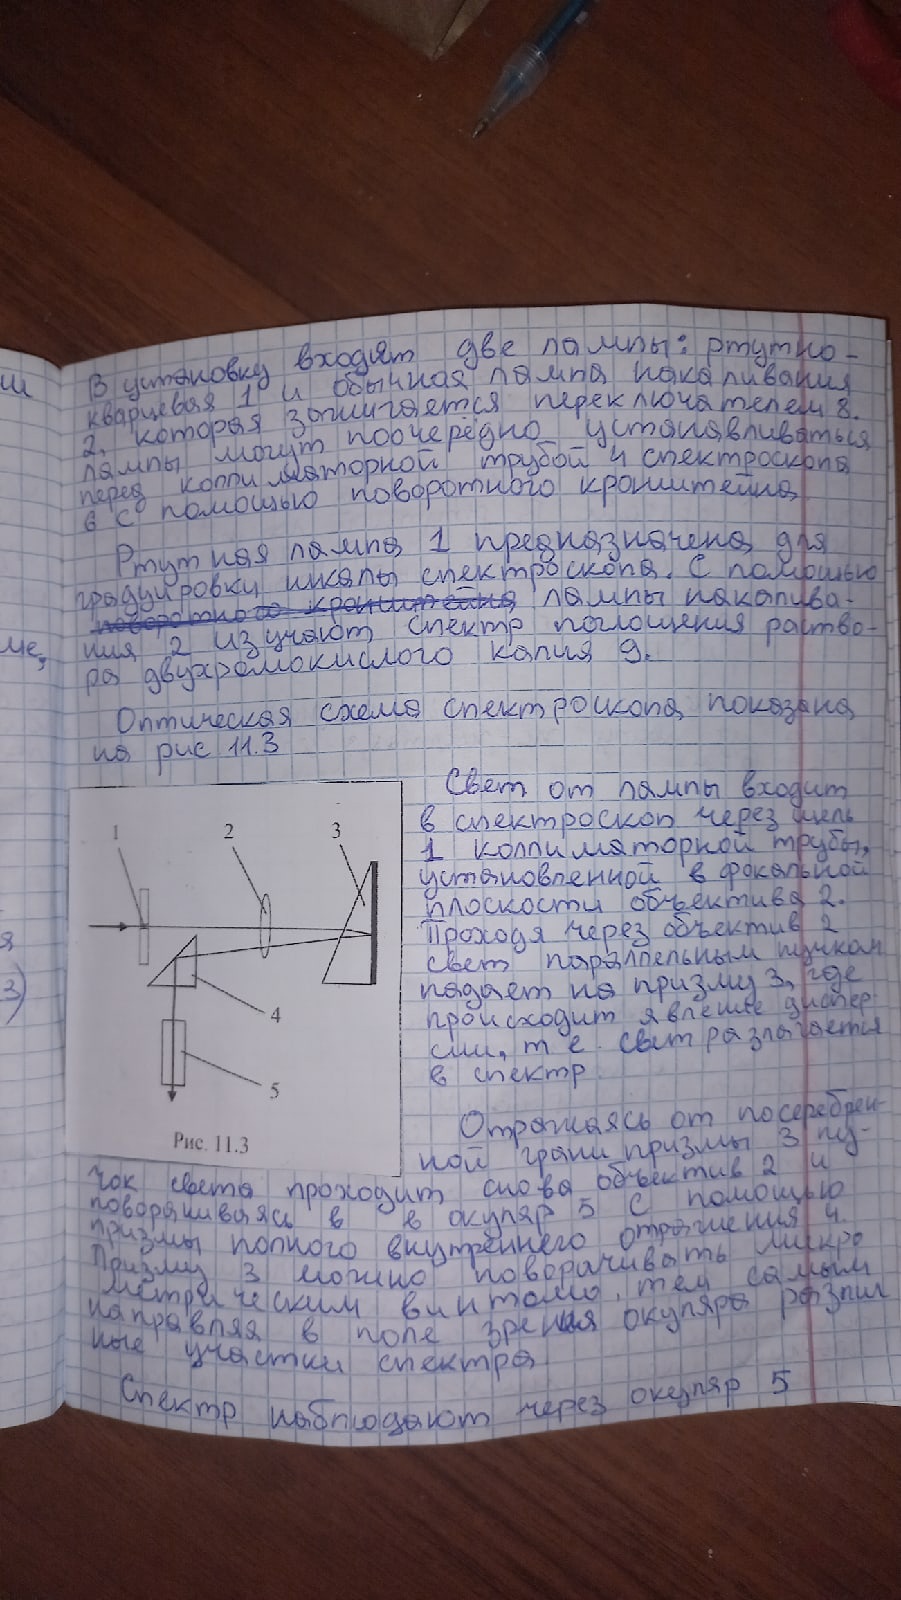 В установку входят две лампы: ртутно-
кварцевая 1 и обычная лампа накаливания
2, которая зажигается переключателем 8.
Лампы могут поочерёдно устанавливаться
перед коллиматорной трубой 4 спектроскопа
в с помощью поворотного кронштейна
Ртутная лампа 1 предназначена для
градуировки шкалы спектроскопа. С помощью
поворотно кронштейна лампы накалива-
ния 2 изучают спектр поглощения раство-
ра двухромокислого калия 9.
Оптическая схема спектроскопа показана
на рис 11.3
Свет от лампы входит
в спектроскоп через щель
1 коллиматорной трубы,
установленной в фокальной
плоскости объектива 2.
Проходя через объектив 2
свет параллельным пучком
падает на призму 3, где
происходит явление диспер
сии, т е. свет разлагается
в спектр
1
2
3
4
5
Рис. 11.3
Отражаясь от посеребрен-
ной грани призмы 3 пу-
чок света проходит снова объектив 2 и
поворачиваясь в в окуляр 5 с помощью
призмы полного внутреннего отражения 4.
Призму 3 можно поворачивать микро
метрическим винтом, тем самым
направляя в поле зрения окуляра
ные участки спектра
Спектр наблюдают через окуляр 5
ш
ме,
я
3)